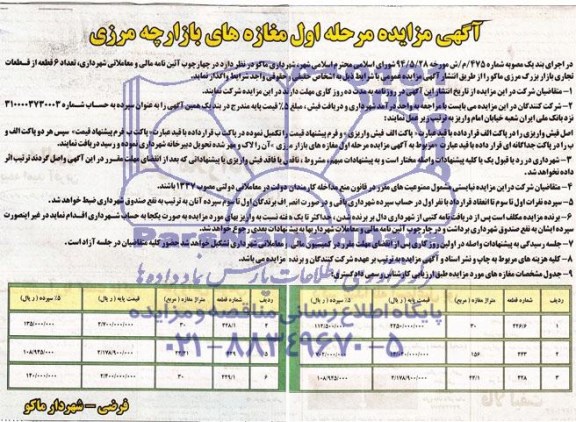 آگهی مزایده مرحله اول مغازه های بازارچه مرزی
در اجرای بند یک مصوبه شماره ۴۷۵/م/ش مورخه ۹۴/۵/۲۸ شورای اسلامی محترم اسلامی شهر، شهرداری ماکو در نظر دارد در چهارچوب آئین نامه مالی و معاملاتی شهرداری، تعداد ۶ قطعه از قطعات
تجاری بازار بزرگ مرزی ماکو را از طریق انتشار آگهی مزایده عمومی با شرایط ذیل به اشخاص حقیقی و حقوقی واجد شرایط واگذار نماید.
۱- متقاضیان شرکت در این مزایده از تاریخ انتشار این آگهی در روزنامه به مدت ده روز کاری مهلت دارند در این مزایده شرکت نمایند.
۲- شرکت کنندگان در این مزایده می بایست با مراجعه به واحد درآمد شهرداری و دریافت فیش، مبلغ ۵٪ قیمت پایه مندرج در بند یک همین آگهی را به عنوان سپرده به حساب شماره ۳۱۰۰۰۰۳۷۳۰۰۰۳
نزد بانک ملی ایران شعبه خیابان امام واریز به ترتیب زیر عمل نمایند:
اصل فیش واریزی را در پاکت الف قرار داده با قید عبارت «پاکت الف فیش واریزی» و فرم پیشنهاد قیمت را تکمیل نموده در پاکت ب قرار داده با قید عبارت «پاکت ب فرم پیشنهاد قیمت» سپس هر دو پاکت الف و
ب را در پاکت جداگانه ای قرار داده با قید عبارت «مربوط به آگهی مزایده مرحله اول مغازه های بازار مرزی» آن را لاک و مهر شده تحویل دبیرخانه شهرداری نموده و رسید دریافت نمایند.
۳- شهرداری در رد یا قبول یک یا کلیه پیشنهادات واصله مختار است و به پیشنهادات مبهم، مشروط، ناقص یا فاقد فیش واریزی یا پیشنهاداتی که بعد از انقضای مهلت مقرر در این آگهی واصل گردند ترتیب اثر
داده نخواهد شد.
۴- متقاضیان شرکت در این مزایده نبایستی مشمول ممنوعیت های مقرر در قانون منع مداخله کارمندان دولت در معاملاتی دولتی مصوب ۱۳۳۷ باشند.
۵- سپرده نفرات اول تا سوم تا انعقاد قرارداد با نفر اول در حساب سپرده شهرداری باقی و در صورت انصراف برندگان اول تا سوم سپرده آنان به ترتیب به نفع صندوق شهرداری ضبط خواهد شد.
۶- برنده مزایده مکلف است پس از دریافت نامه کتبی از شهرداری دال بر برنده شدن، حداکثر تا یک هفته نسبت به واریز بهای مورد مزایده به صورت یکجا به حساب شهرداری اقدام نماید در غیر اینصورت
سپرده ایشان به نفع صندوق شهرداری برداشت و در چارچوب آئین نامه مالی و معاملات شهرداریها به پیشنهادات بعدی رجوع خواهد شد.
۷- جلسه رسیدگی به پیشنهادات واصله در اولین روز کاری پس از انقضای مهلت مقرر در کمیسیون مالی و معاملاتی شهرداری تشکیل خواهد شد حضور کلیه متقاضیان در جلسه آزاد است.
۸- کلیه هزینه های مربوط به چاپ و نشر اسناد و آگهی مزایده به ترتیب بر عهده شرکت کنندگان و برنده مزایده می باشد.
۹- جدول مشخصات مغازه های مورد مزایده طبق ارزیابی کارشناس رسمی دادگستری
ردیف شماره قطعه متراژ مغازه (مربع) قیمت پایه (ریال) ۵٪ سپرده (ریال) ردیف شماره قطعه متراژ مغازه (مربع) قیمت پایه (ریال) ۵٪ سپرده (ریال)
۱ ۴۴۶/۶ ۳۰ ۲۲۵۰/۰۰۰/۰۰۰ ۱۱۲/۵۰۰/۰۰۰ ۴ ۴۴۸/۱ ۳۰ ۲/۷۰۰/۰۰۰/۰۰۰ ۱۳۵/۰۰۰/۰۰۰
۲ ۴۴۳ ۱۵۶ ۷۰۲/۰۰۰/۰۰۰ ۵ ۲/۱۷۸/۹۰۰/۰۰۰ ۱۰۸/۹۴۵/۰۰۰
۳ ۴۴۸ ۲۴/۱ ۲/۱۷۸/۹۰۰/۰۰۰ ۱۰۸/۹۴۵/۰۰۰ ۶ ۴۴۹/۱ ۳۰ ۲/۴۰۰/۰۰۰/۰۰۰ ۱۲۰/۰۰۰/۰۰۰
پایگاه اطلاع رسانی مناقصه و مزایده
۰۲۱-۸۸۳۴۹۶۷۰-۵
فرضی – شهردار ماکو